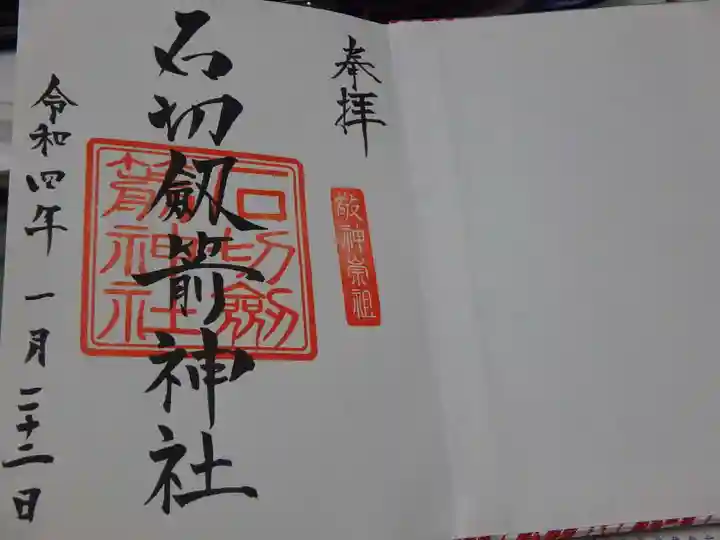 奉拝
敬神崇祖
石切劔箭神社
石切劔
箭神社
令和四年 一月二十二日